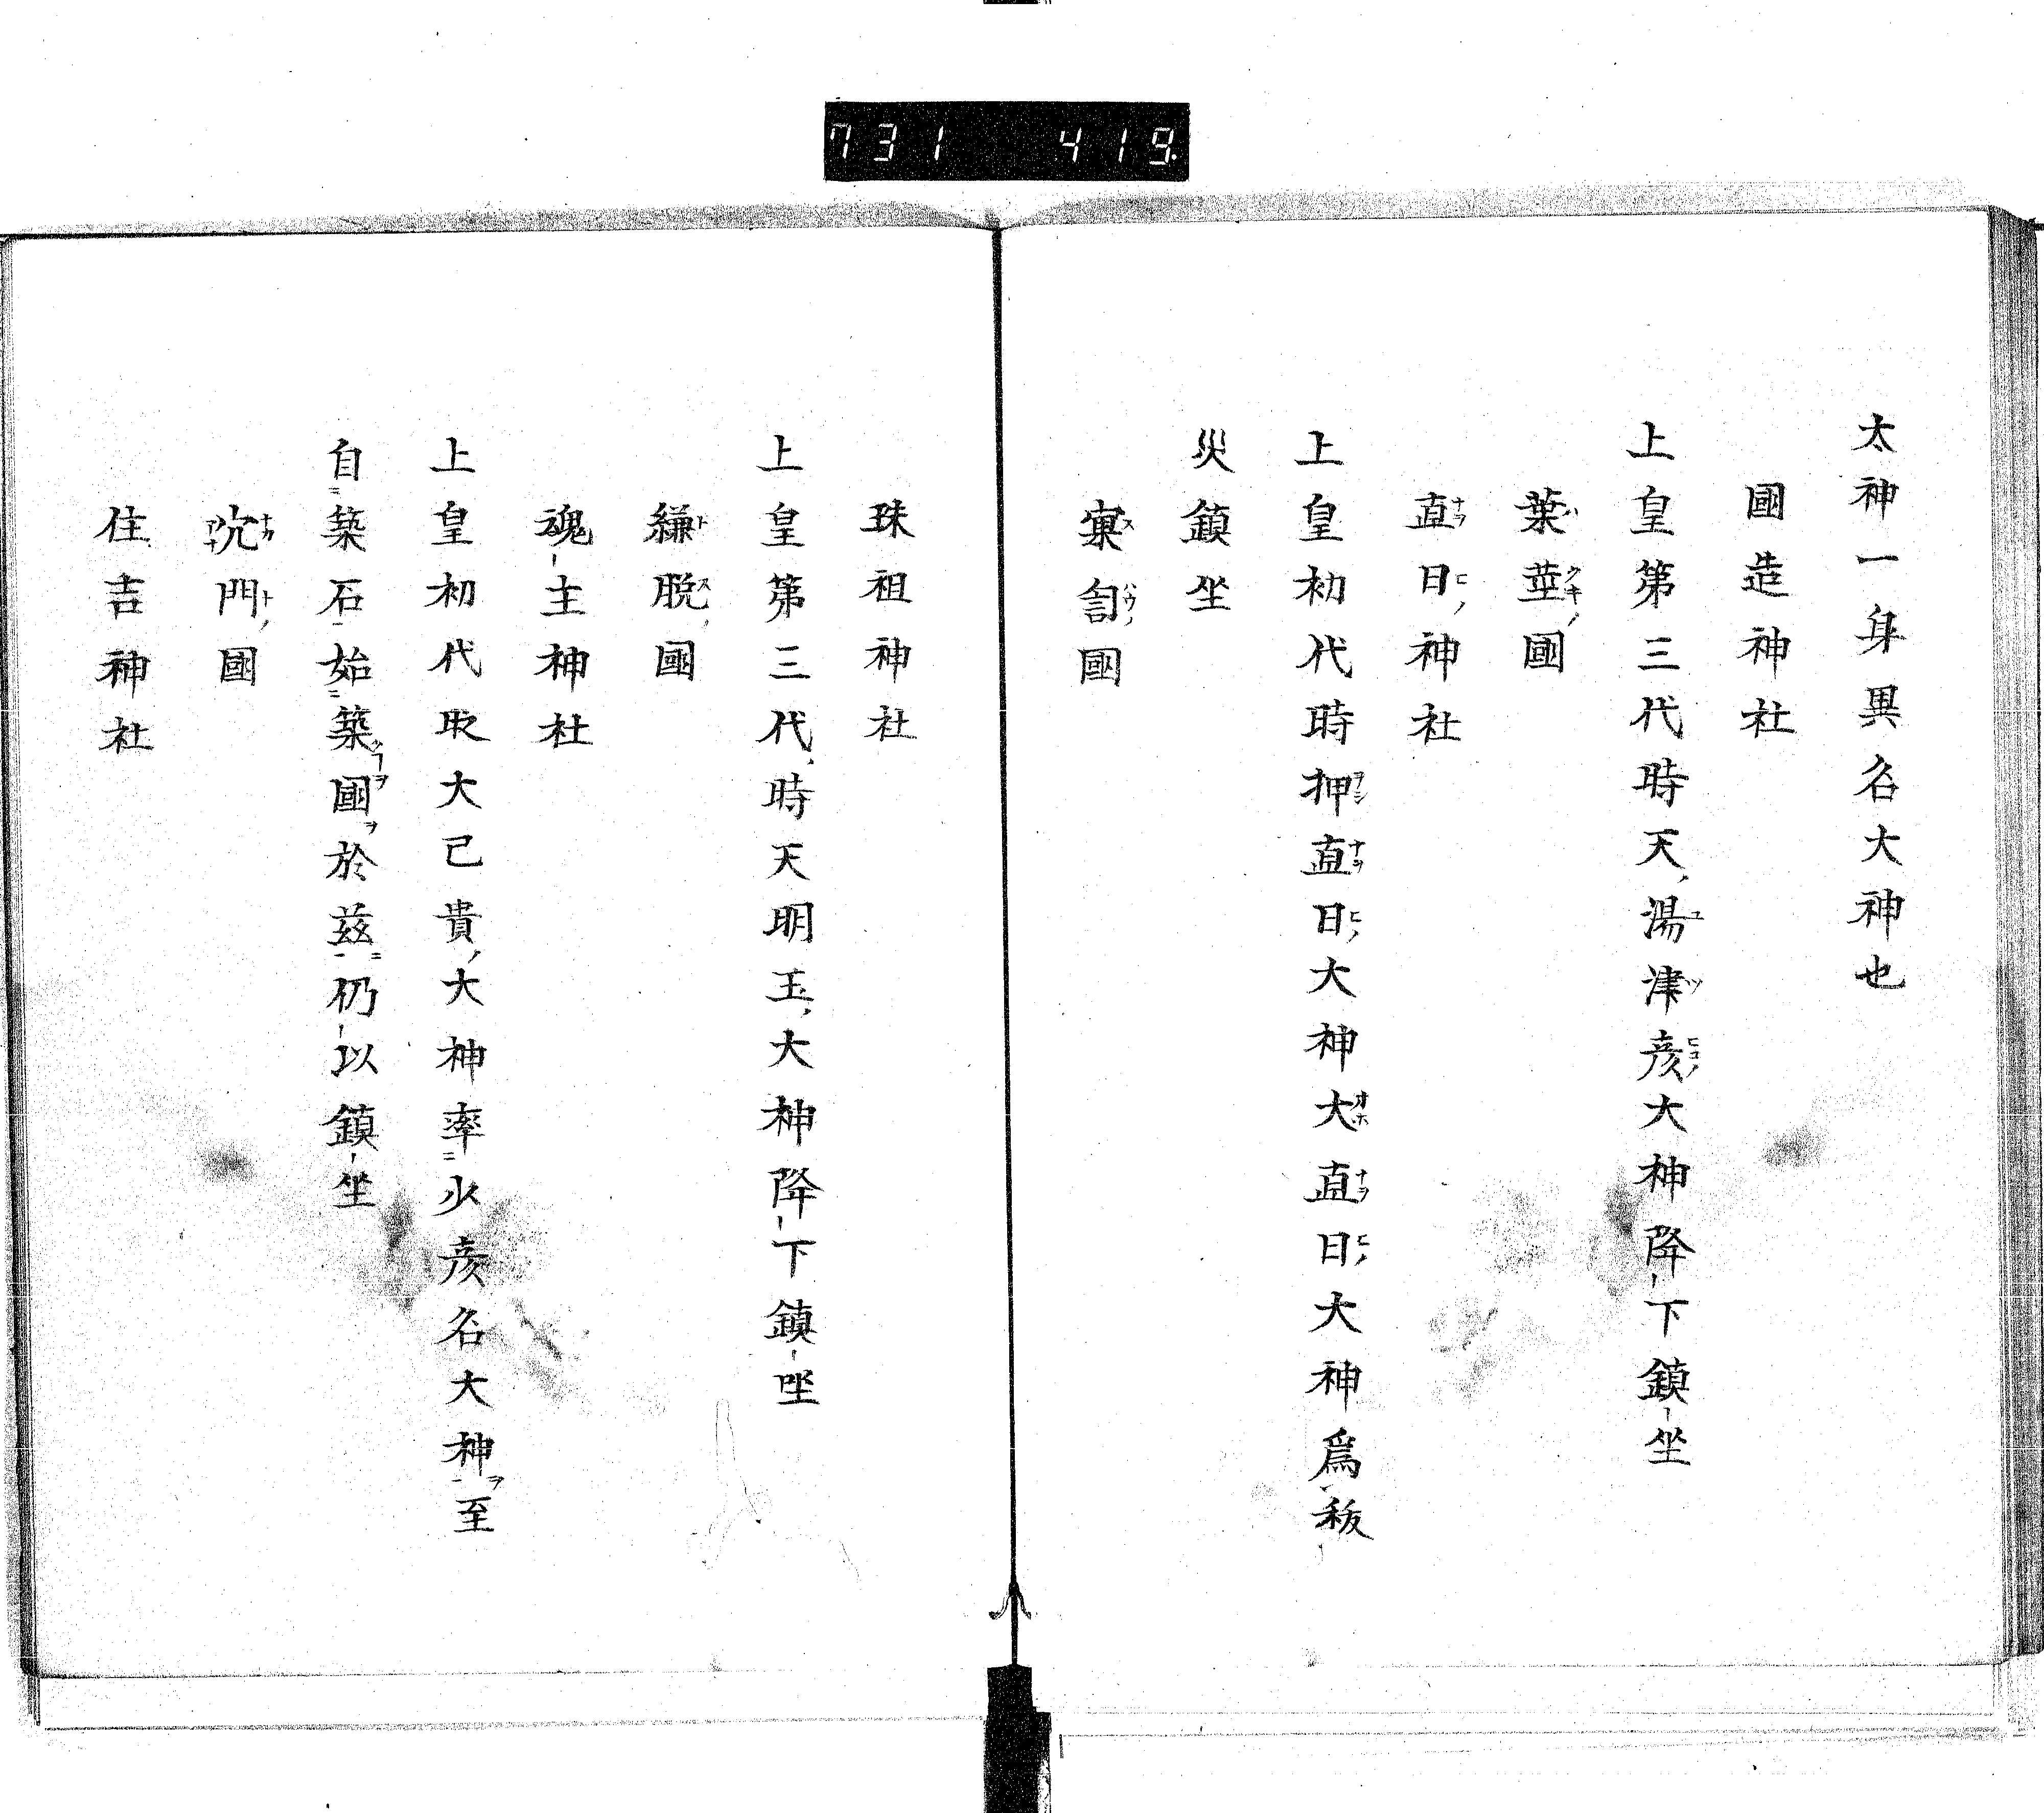 731 419
太神一身異名大神也
國造神社
上皇第三代時天湯津彦大神降下鎮坐
葉莖國
直日神社
上皇初代時押直日大神大直日大神爲秡
災鎮坐
國
珠祖神社
上皇第三代時天明玉大神降下鎮坐
縑脫國
魂主神社
上皇初代取大己貴大神率少彦名大神至
自築石始築國於茲仍以鎮坐
門國
住吉神社